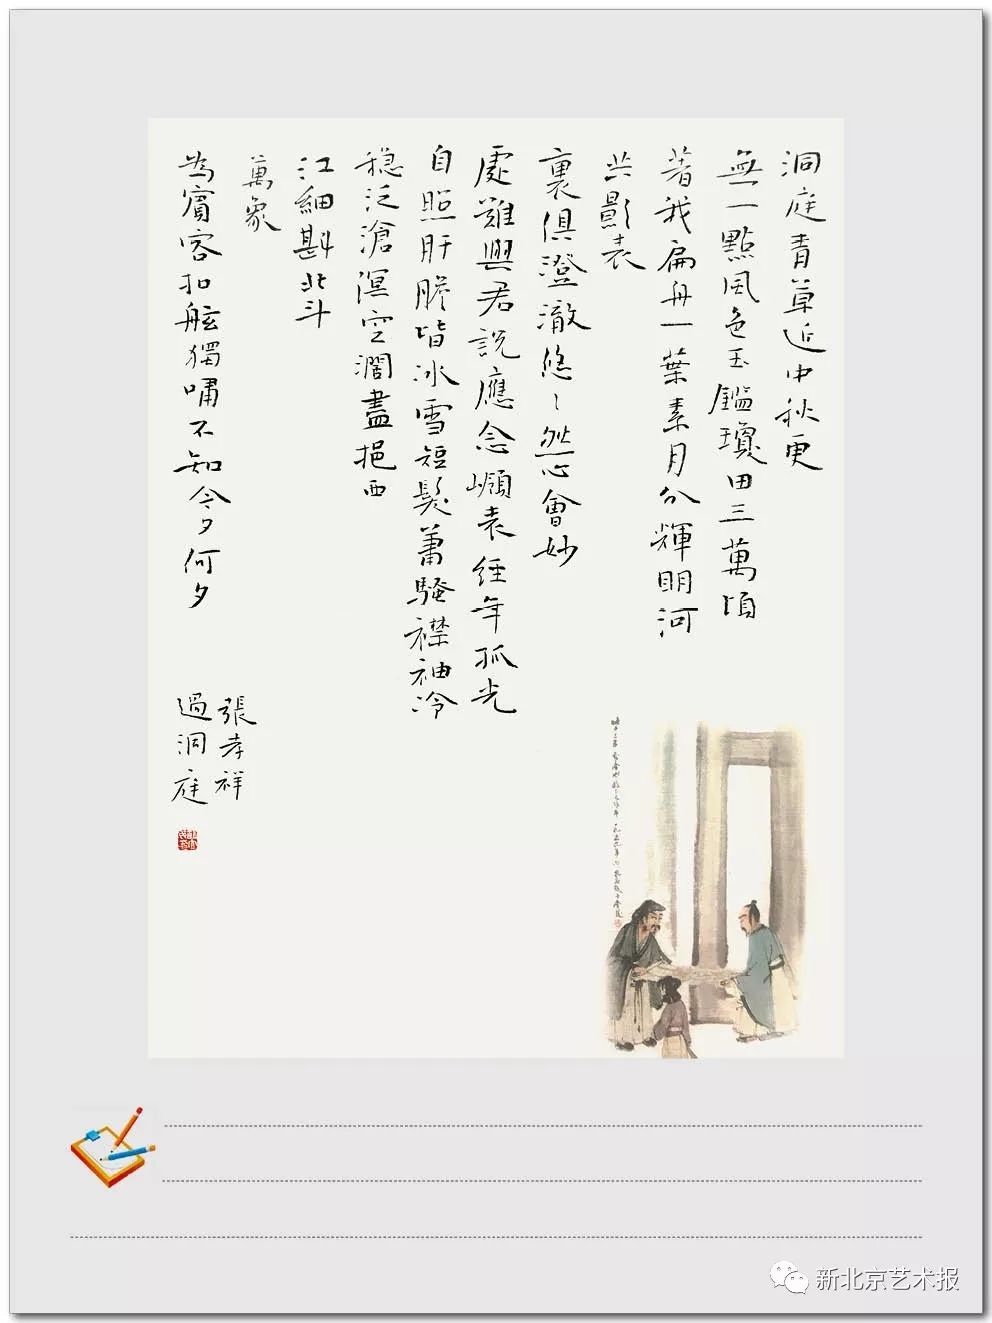 洞庭青草近中秋更
無一點風色玉鑑瓊田三萬頃
著我扁舟一葉素月分輝明河
共影表
裏俱澄澈悠〻然心會妙
處難與君說應念嶺表經年孤光
自照肝膽皆冰雪短髮蕭騷襟袖冷
穩泛滄溟空濶盡挹西
江細斟北斗
萬象
為賓客扣舷獨嘯不知今夕何夕
張孝祥
過洞庭
新北京艺术报